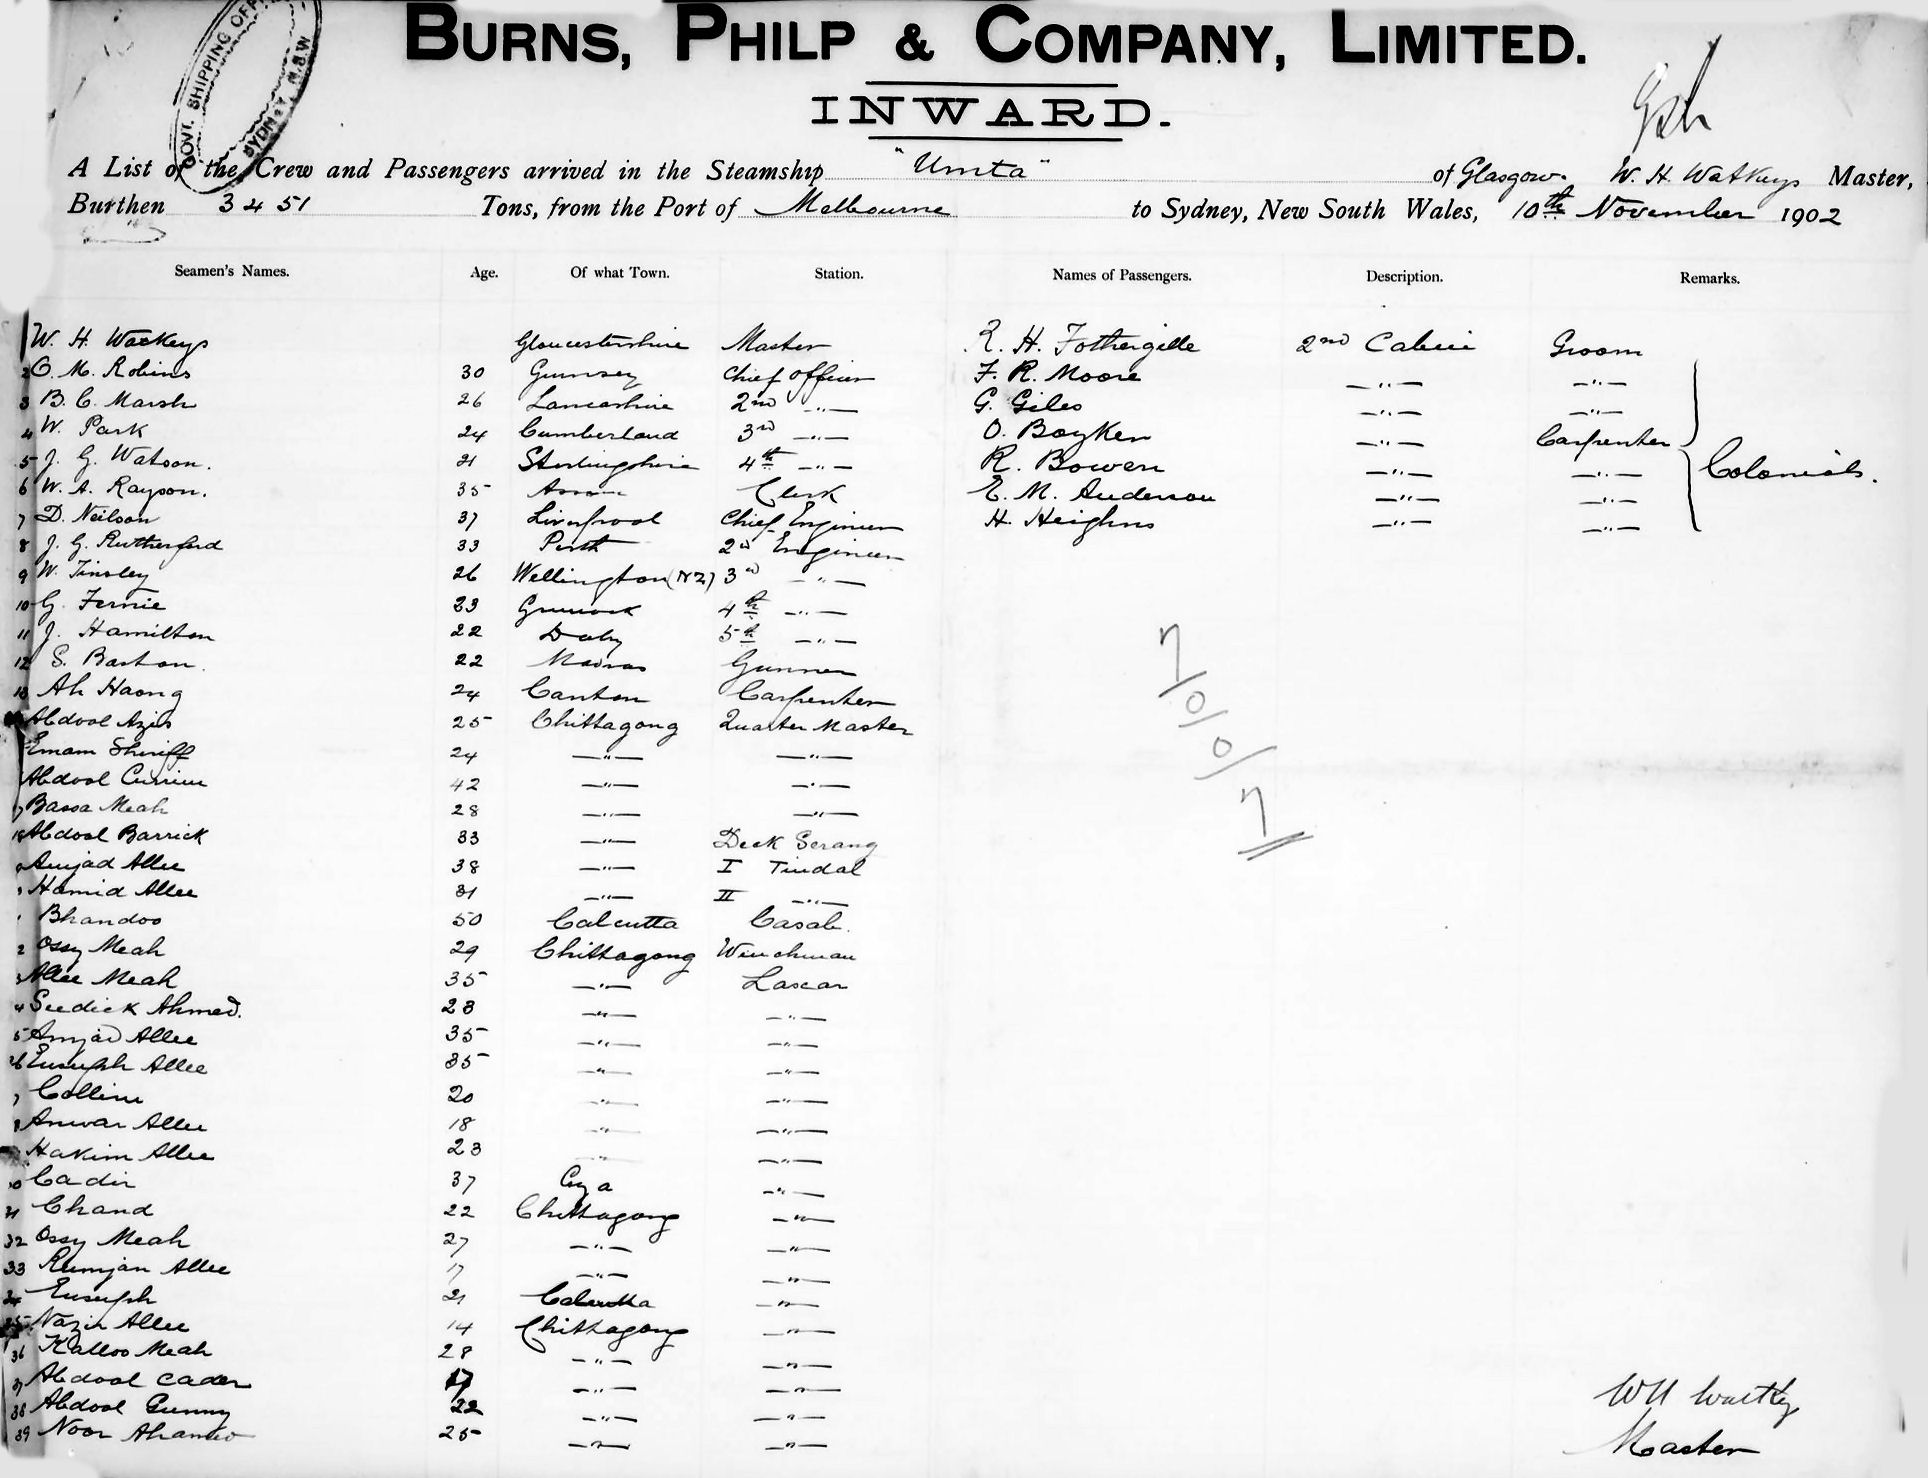 BURNS, PHILP & COMPANY, LIMITED.
INWARD.
GOVT. SHIPPING OFFICE SYDNEY N.S.W.
A List of the Crew and Passengers arrived in the Steamship "Umta" of Glasgow. W. H. Watkeys Master,
Burthen 3451 Tons, from the Port of Melbourne to Sydney, New South Wales, 10th November 1902
Seamen's Names. Age. Of what Town. Station. Names of Passengers. Description. Remarks.
W. H. Watkeys Gloucestershire Master R. H. Fothergille 2nd Cabin Groom
2 O. M. Robins 30 Gurnsey Chief Officer F. R. Moore —"— —"—
3 B. C. Marsh 26 Lancashire 2nd —"— G. Giles —"— —"—
4 W. Park 24 Cumberland 3rd —"— O. Boyken —"— Carpenter
5 J. G. Watson. 21 Sterlingshire 4th —"— R. Bowen —"— —"— Colonials.
6 W. A. Rayson. 35 Assam Clerk E. M. Anderson —"— —"—
7 D. Neilson 37 Liverpool Chief Engineer H. Heighns —"— —"—
8 J. G. Rutherford 33 Perth 2nd Engineer
9 W. Tinsley 26 Wellington (NZ) 3rd —"—
10 G. Fernie 23 Greenock 4th —"—
11 J. Hamilton 22 Dalry 5th —"—
12 S. Barton. 22 Madras Gunner
13 Ah Haong 24 Canton Carpenter
Abdool Azis 25 Chittagong Quarter Master
Emam Sheriff 24 —"— —"—
Abdool Currim 42 —"— —"—
Bassa Meah 28 —"— —"—
18 Abdool Barrick 33 —"— Deck Serang
Amjad Allee 38 —"— I Tindal
Hamid Allee 31 —"— II —"—
Bhandoo 50 Calcutta Casab.
2 Ossy Meah 29 Chittagong Winchman
3 Allee Meah 35 —"— Lascar
4 Seedick Ahmed. 28 —"— —"—
5 Amjad Allee 35 —"— —"—
26 Eusuph Allee 35 —"— —"—
7 Collim 20 —"— —"—
8 Anwar Allee 18 —"— —"—
Hakim Allee 23 —"— —"—
30 Cadir 37 —"—
31 Chand 22 Chittagong —"—
32 Ossy Meah 27 —"— —"—
33 Rumjan Allee 17 —"— —"—
34 Eusuph 21 Calcutta —"—
35 Nazir Allee 14 Chittagong —"—
36 Kalloo Meah 28 —"— —"—
37 Abdool Cader 17 —"— —"—
38 Abdool Gunny 22 —"— —"—
39 Noor Ahamed 25 —"— —"—
7/0/0/7
Master